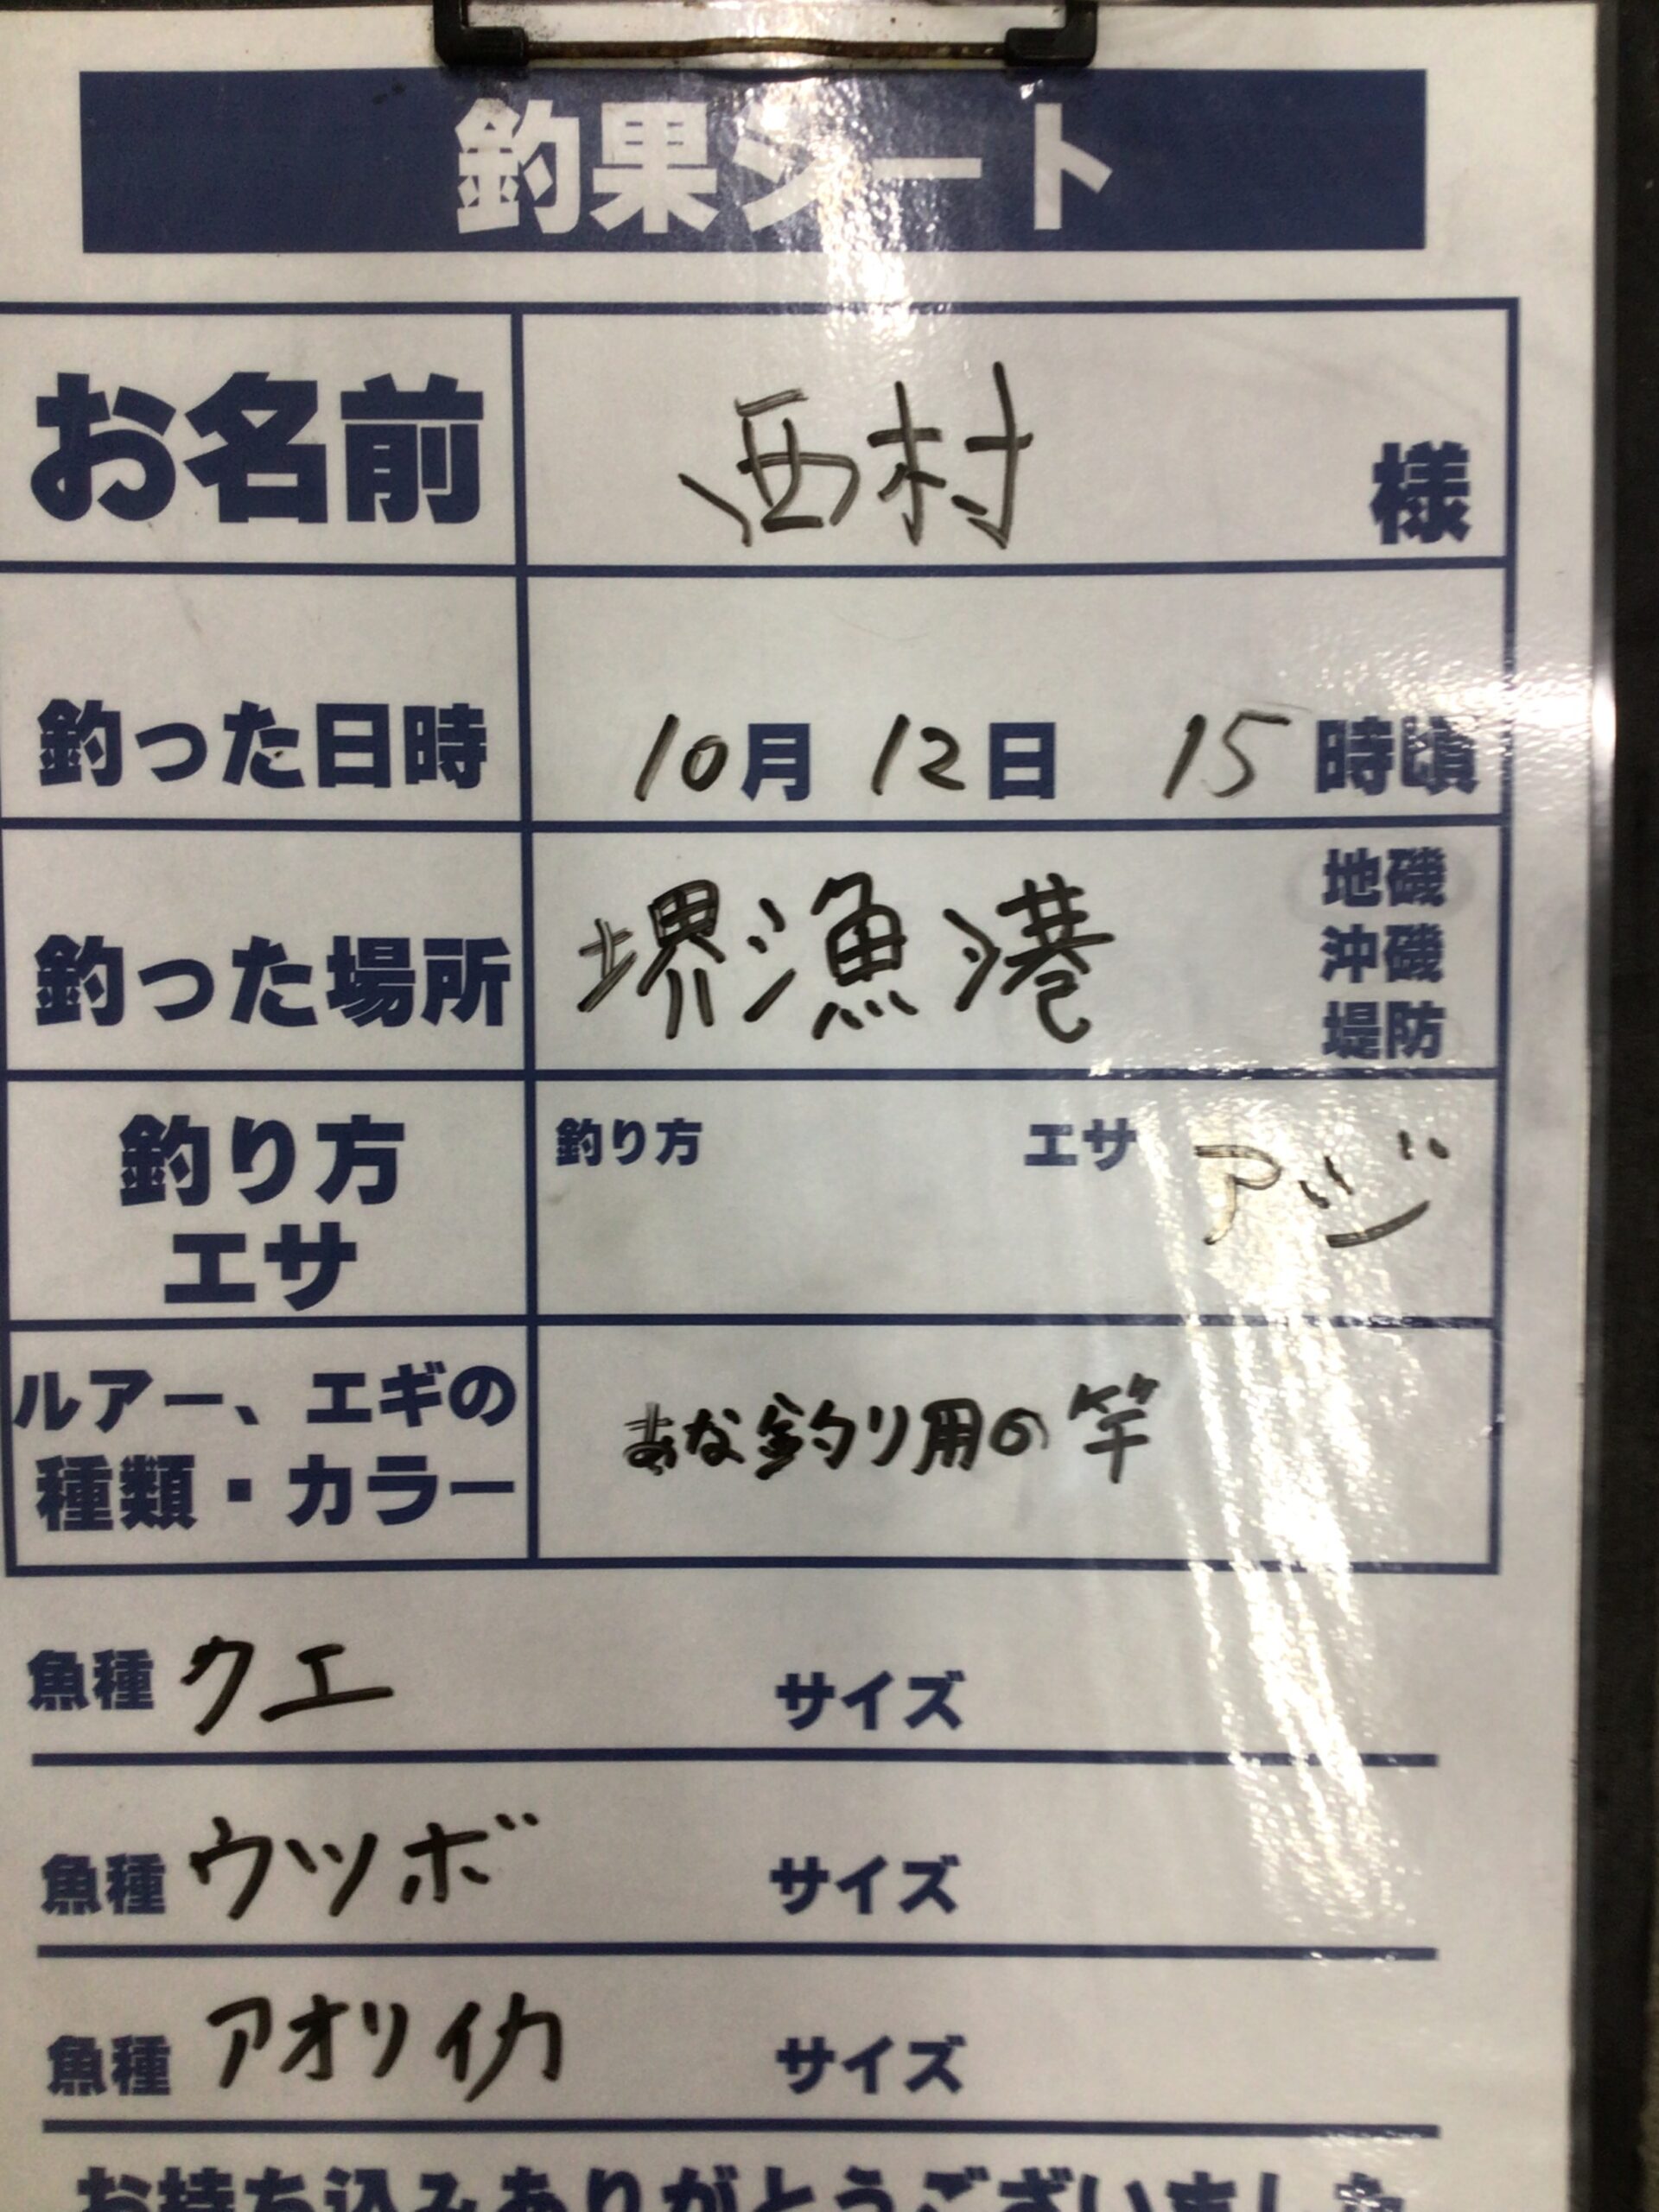 釣果シート
お名前 西村 様
釣った日時 10月 12日 15時頃
釣った場所 堺漁港 地磯
沖磯
堤防
釣り方 エサ アジ
釣り方
エサ
ルアー、エギの
種類・カラー
あな釣り用の竿
魚種 クエ サイズ
魚種 ウツボ サイズ
魚種 アオリイカ サイズ
お持ち込みありがとうございました